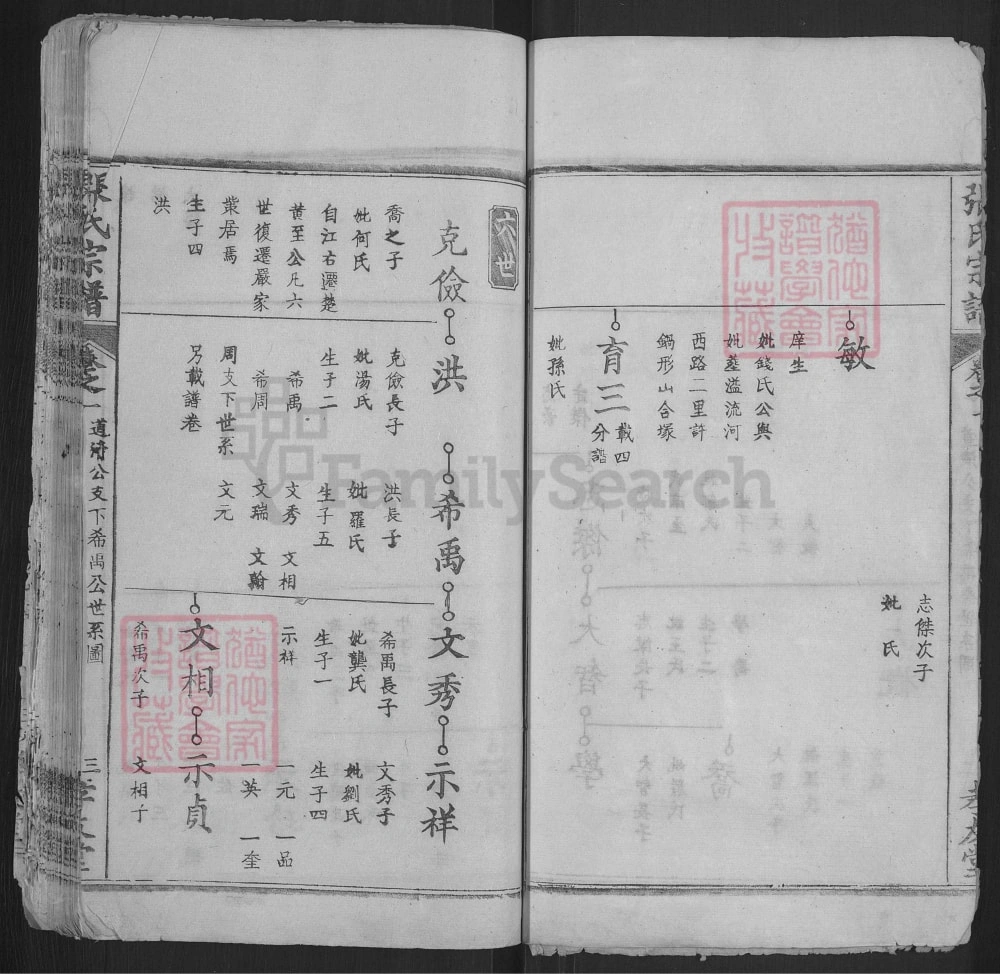 張氏宗譜
志傑次子
妣 氏
敏
庠生
妣錢氏公與
妣葬溢流河
西路二里許
鍋形山合塚
育三
載四
分譜
妣孫氏
六世
克儉
喬之子
妣何氏
自江右遷楚
黃至公凡六
世復遷嚴家
業居焉
生子四
洪
洪
克儉長子
妣湯氏
生子二
希禹
希周
周支下世系
另載譜卷
希禹
洪長子
妣羅氏
生子五
文秀 文相
文瑞 文翰
文元
文秀
希禹長子
妣龔氏
生子一
示祥
示祥
文秀子
妣劉氏
生子四
一元 一品
一英 一奎
文相
希禹次子
示貞
文相子
張氏宗譜
卷之一
道清公支下希禹公世系圖
三
孝友堂
FamilySearch